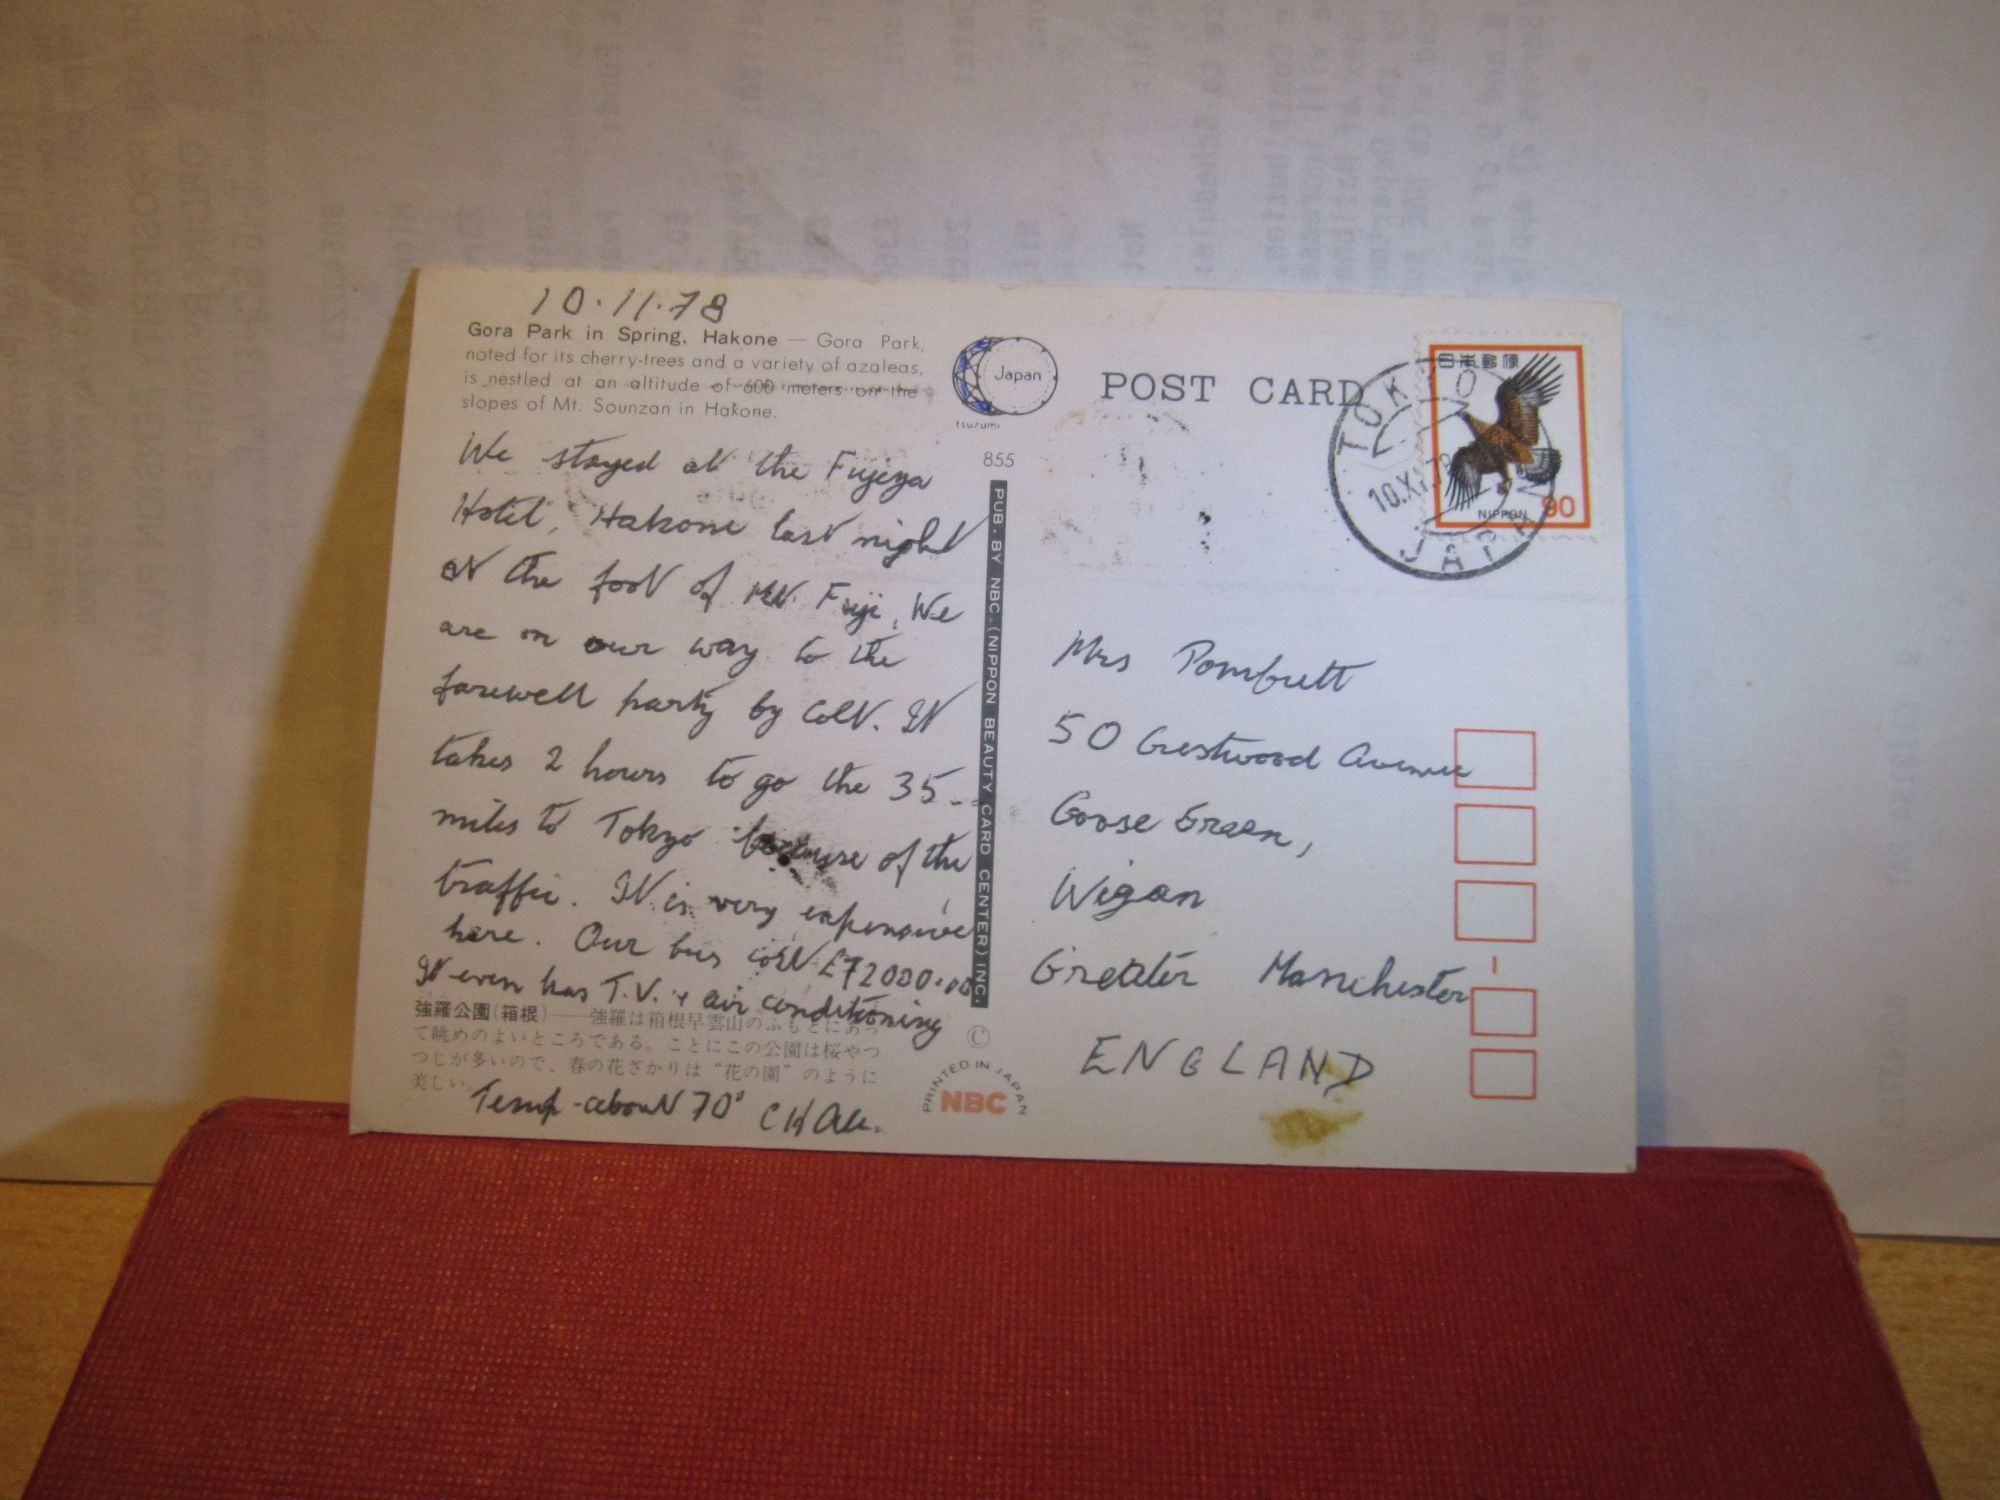 10.11.78
Gora Park in Spring, Hakone — Gora Park,
noted for its cherry-trees and a variety of azaleas,
is nestled at an altitude of 600 meters on the
slopes of Mt. Sounzan in Hakone.
We stayed at the Fujeya
Hotel, Hakone last night
at the foot of Mt. Fuji, We
are on our way to the
farewell party by coat. It
takes 2 hours to go the 35
miles to Tokyo because of the
traffic. It is very expensive
here. Our bus cost £72000.00
It even has T.V. & air conditioning
強羅公園(箱根)——強羅は箱根早雲山のふもとにあっ
て眺めのよいところである。ことにこの公園は桜やつ
つじが多いので、春の花ざかりは“花の園”のように
美しい。
Temp - about 70°
Japan
tsuzumi
855
PUB. BY NBC. (NIPPON BEAUTY CARD CENTER) INC.
©
PRINTED IN JAPAN
NBC
POST CARD
TOKYO
10.XI.78
JAPAN
日本郵便
NIPPON 90
Mrs Pombutt
50 Crestwood Avenue
Goose Green,
Wigan
Greater Manchester
ENGLAND